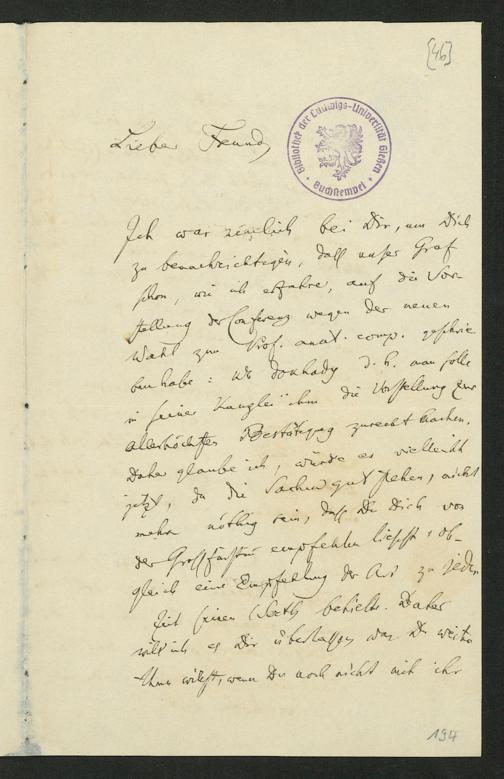 [46]
Bibliothek der Ludwigs-Universität Gießen
Buchstempel
Lieber Freund,
Ich war bei Dir, um Dich
zu benachrichtigen, daß unser Graf
schon, wie ich erfahre, auf die Vor-
stellung der Conferenz wegen der neuen
Wahl zum Prof. anat. comp. geschrie
ben habe: d. h. man solle
in seiner Kanzlei ihm die Vorstellung zur
allerhöchsten Bestätigung zurecht machen.
Daher glaube ich, würde es vielleicht
jetzt, da die Sachen gut stehen, nicht
mehr nöthig sein, daß Du Dich von
der Großfürstin empfehlen ließest, ob-
gleich eine Empfehlung der Art zu jeder
Zeit seinen Werth behielte. Daher
will ich es Dir überlassen was Du weiter
thun willst, wenn Du noch nicht mit ihr
194